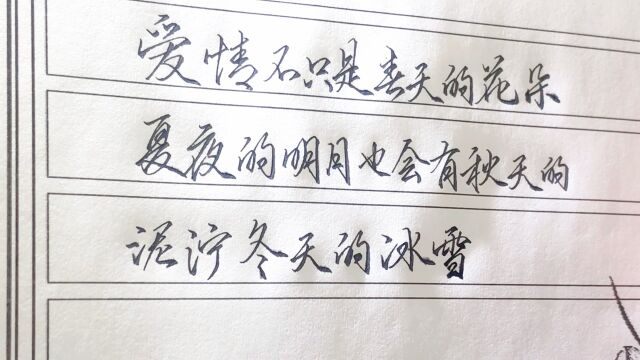 爱情不只是春天的花朵
夏夜的明月也会有秋天的
泥泞冬天的冰雪